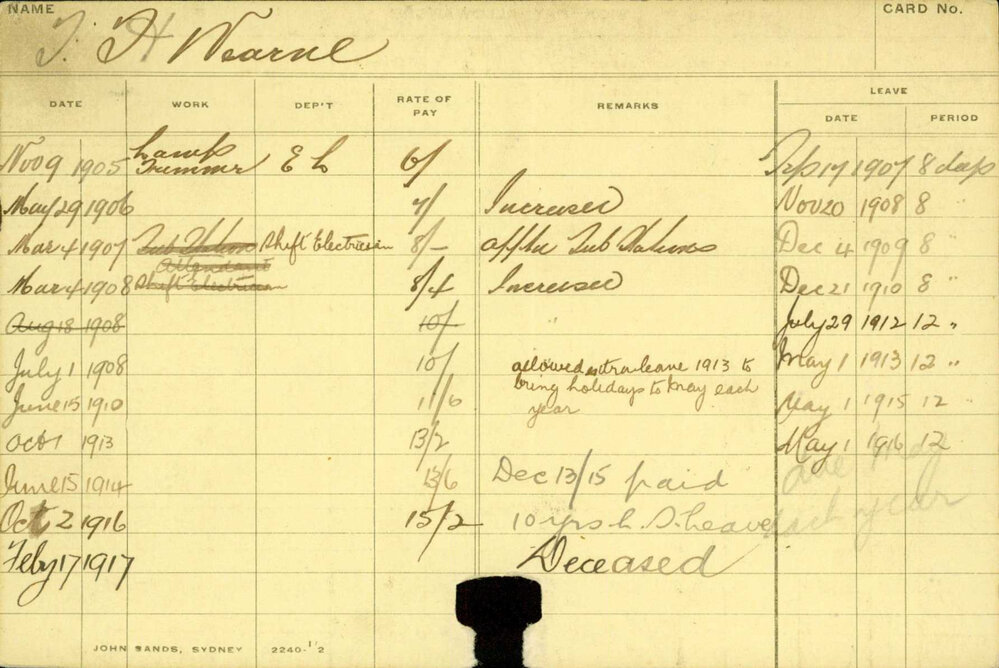 NAME
CARD No.
T. H Wearne
LEAVE
DATE WORK DEP'T RATE OF PAY REMARKS DATE PERIOD
Nov 9 1905 Lamp Trimmer E L 6/ Sep 17 1907 8 days
May 29 1906 7/ Increased Nov 20 1908 8 "
Mar 4 1907 Sub Station Attendant Shift Electrician 8/- Sub Stations Dec 4 1909 8 "
Mar 4 1908 Shift Electrician 8/4 Increased Dec 21 1910 8 "
Aug 18 1908 10/- " July 29 1912 12 "
July 1 1908 10/ allowed extra leave 1913 to May 1 1913 12 "
bring holidays to May each
June 15 1910 11/6 year May 1 1915 12 "
Oct 1 1913 13/2 May 1 1916 12
due May
June 15 1914 13/6 Dec 13/15 paid
each year
Oct 2 1916 15/2 10 yrs L. S. Leave
Feby 17 1917 Deceased
JOHN SANDS, SYDNEY 2240-1'2